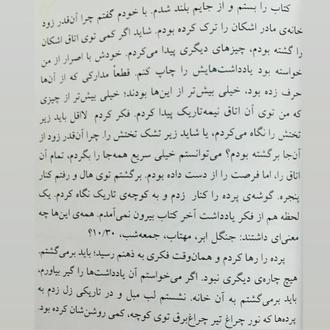 کتاب را بستم و از جایم بلند شدم. با خودم گفتم چرا آن‌قدر زود
خانه‌ی مادر اشکان را ترک کرده بودم. شاید اگر کمی توی اتاق اشکان
را گشته بودم، چیزهای دیگری پیدا می‌کردم. خودش با اصرار از من
خواسته بود یادداشت‌هایش را چاپ کنم. قطعاً مدارکی که از آن‌ها
حرف زده بود، خیلی بیش‌تر از این‌ها بودند؛ خیلی بیش‌تر از چیزی
که من توی آن اتاق نیمه‌تاریک پیدا کردم. فکر کردم لااقل باید زیر
تختش را نگاه می‌کردم، یا شاید زیر تشک تختش را. چرا آن‌قدر زود از
آن‌جا برگشته بودم؟ می‌توانستم خیلی سریع همه‌جا را بگردم، تمام آن
اتاق را، اما فرصت را از دست داده بودم. برگشتم توی هال و رفتم کنار
پنجره. گوشه‌ی پرده را کنار زدم و به کوچه‌ی تاریک نگاه کردم. یک
لحظه هم از فکر یادداشت آخر کتاب بیرون نمی‌آمدم. همه‌ی این‌ها چه
معنی‌ای داشتند: جنگل ابر، مهتاب، جمعه‌شب، ۱۰/۳۰؟
پرده را رها کردم و همان‌وقت فکری به ذهنم رسید؛ باید برمی‌گشتم.
هیچ چاره‌ی دیگری نبود. اگر می‌خواستم آن یادداشت‌ها را گیر بیاورم،
باید برمی‌گشتم به آن خانه. نشستم لب مبل و در تاریکی زل زدم به
پرده‌ها که نور چراغ تیر چراغ‌برق توی کوچه، کمی روشن‌شان کرده بود.